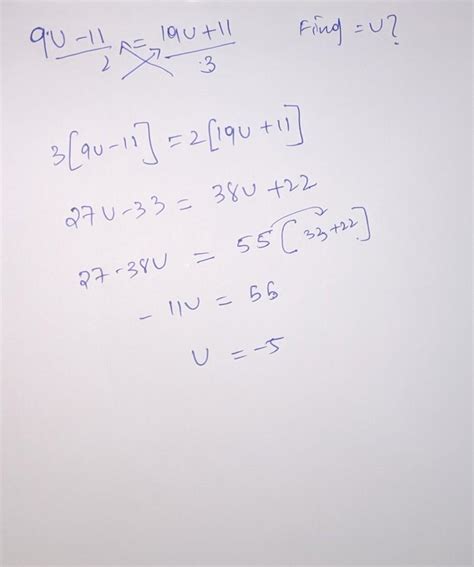 9U-11/2 = 19U+11/3 Find = U?
3[9U-11] = 2[19U+11]
27U-33 = 38U+22
27-38U = 55 [33+22]
-11U = 55
U = -5